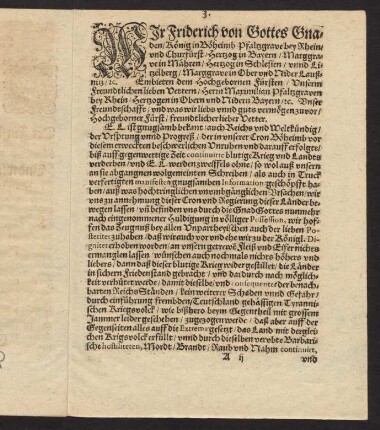 3.
WIr Friderich von Gottes Gna-
den / König in Böheimb Pfaltzgrave bey Rhein
und Churfürst / Hertzog in Bayern / Marggra-
ve in Mähren / Hertzog in Schlesien / unnd Lü-
tzelberg / Marggrave in Ober und Nider Lauß-
nitz / ꝛc. Embieten dem Hochgebornen Fürsten / Unserm
Freundtlichen lieben Vettern / Herrn Maximilien Pfaltzgraven
bey Rhein / Hertzogen in Obern und Nidern Bayern / ꝛc. Unser
Freundtschafft / und was wir liebs unnd guts vermögen zuvor /
Hochgeborner Fürst / freundtlicher lieber Vetter.
E. L. ist gnugsamb bekant / auch Reichs und Weltkündig /
der Ursprung unnd Progreß / der in unserer Cron Böheimb vor
diesem erweckten beschwerlichen Unruhen und darauff erfolgte /
biß auff gegenwertige Zeit continuirte blutige Krieg und Landts
verderben / und E. L. werden zweiffels ohne / so wol auß unsern
an sie abgangnen wolgemeinten Schreiben / als auch in Truck
verfertigten manifesten gnugsamben Information geschöpfft ha-
ben / auß was hochtringlichen unumbgänglichen Ursachen / wir
uns zu annehmung dieser Cron und Regierung dieser Länder be-
wegen lassen / uñ befinden uns durch die Gnad Gottes nunmehr
nach eingenommener Huldigung in völliger Possession, wir hof-
fen das Zeugnuß bey allen Unpartheyischen auch der lieben Po-
steritet zu haben / daß wir auch vor und ehe wir zu der Königl. Di-
gnitet erhoben worden / an unsern getrewē Fleiß und Eiffer nichts
ermanglen lassen / wünschen auch nochmals nichts höhers und
liebers / dann daß dieser blutige Krieg wider gestillet / die Länder
in sichern Friedenstand gebracht / und dardurch nach möglich-
keit verhütet werde / damit dißeits und consequenter der benach-
barten Reichs Ständen / kein weiterer Schaden unnd Gefahr /
durch einführung frembden / Teutschland gehässigen Tyranni-
schen Kriegsvolck / wie bißhero beym Gegentheil mit grossem
Jammer leider geschehen / zugezogen werde / daß aber auff der
Gegenseiten alles auff die Extrema gesetzt / das Land mit dergleich-
chen Krigsvolck erfüllt / unnd durch dieselben verübte Barbari-
sche hostiliteten, Mordt / Brandt / Raub und Nahm continuirt,
A ij
und